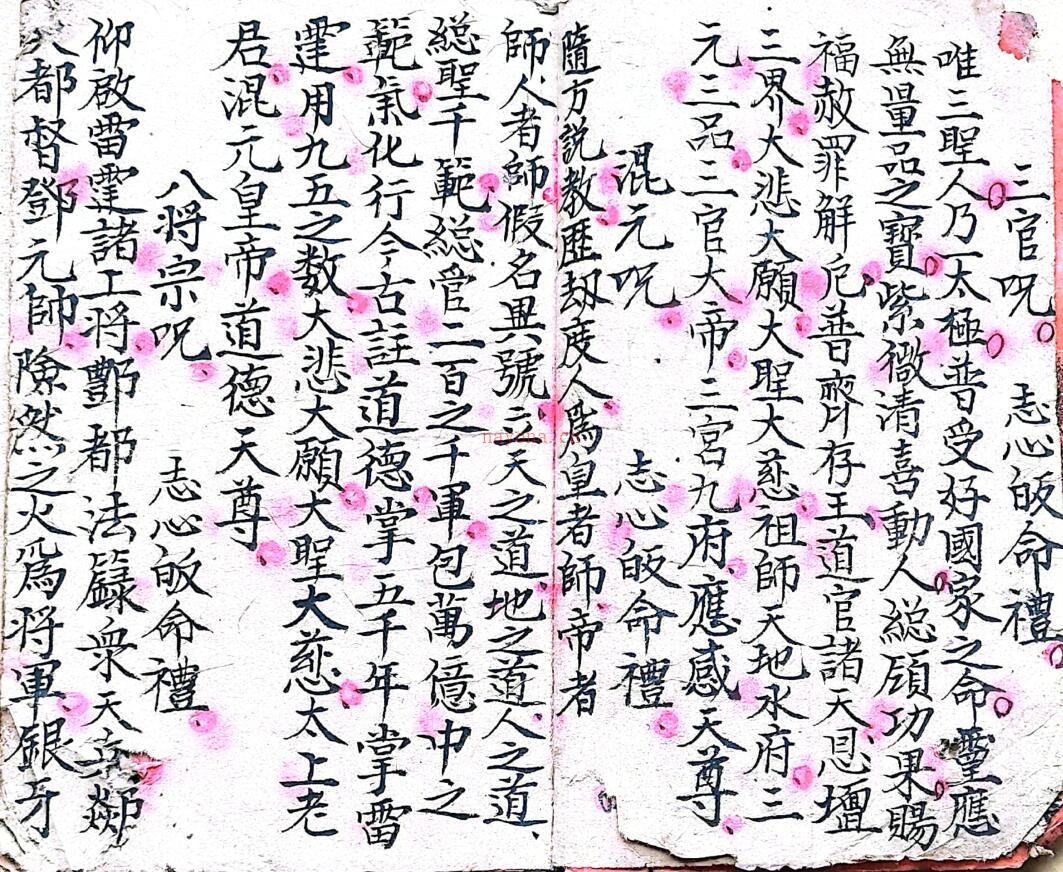 三官咒 志心皈命禮
唯三聖人乃一太極普受好國家之命靈應
無量品之寶紫微清喜動人總領功果賜
福赦罪解厄普齊存王道官諸天恩壇
三界大悲大願大聖大慈祖師天地水府三
元三品三官大帝三宮九府應感天尊
混元咒 志心皈命禮
隨方説教歷劫度人為皇者師帝者
師人者師假名異號立天之道地之道人之道
総聖千範総管二百之千軍包萬億巾之
範氣化行今古註道德掌五千年掌雷
霆用九五之数大悲大願大聖大慈太上老
君混元皇帝道德天尊
八將宗咒 志心皈命禮
仰啟雷霆諸工將酆都法籙眾天京鄰
大都督鄧元帥險然之火為将軍銀牙